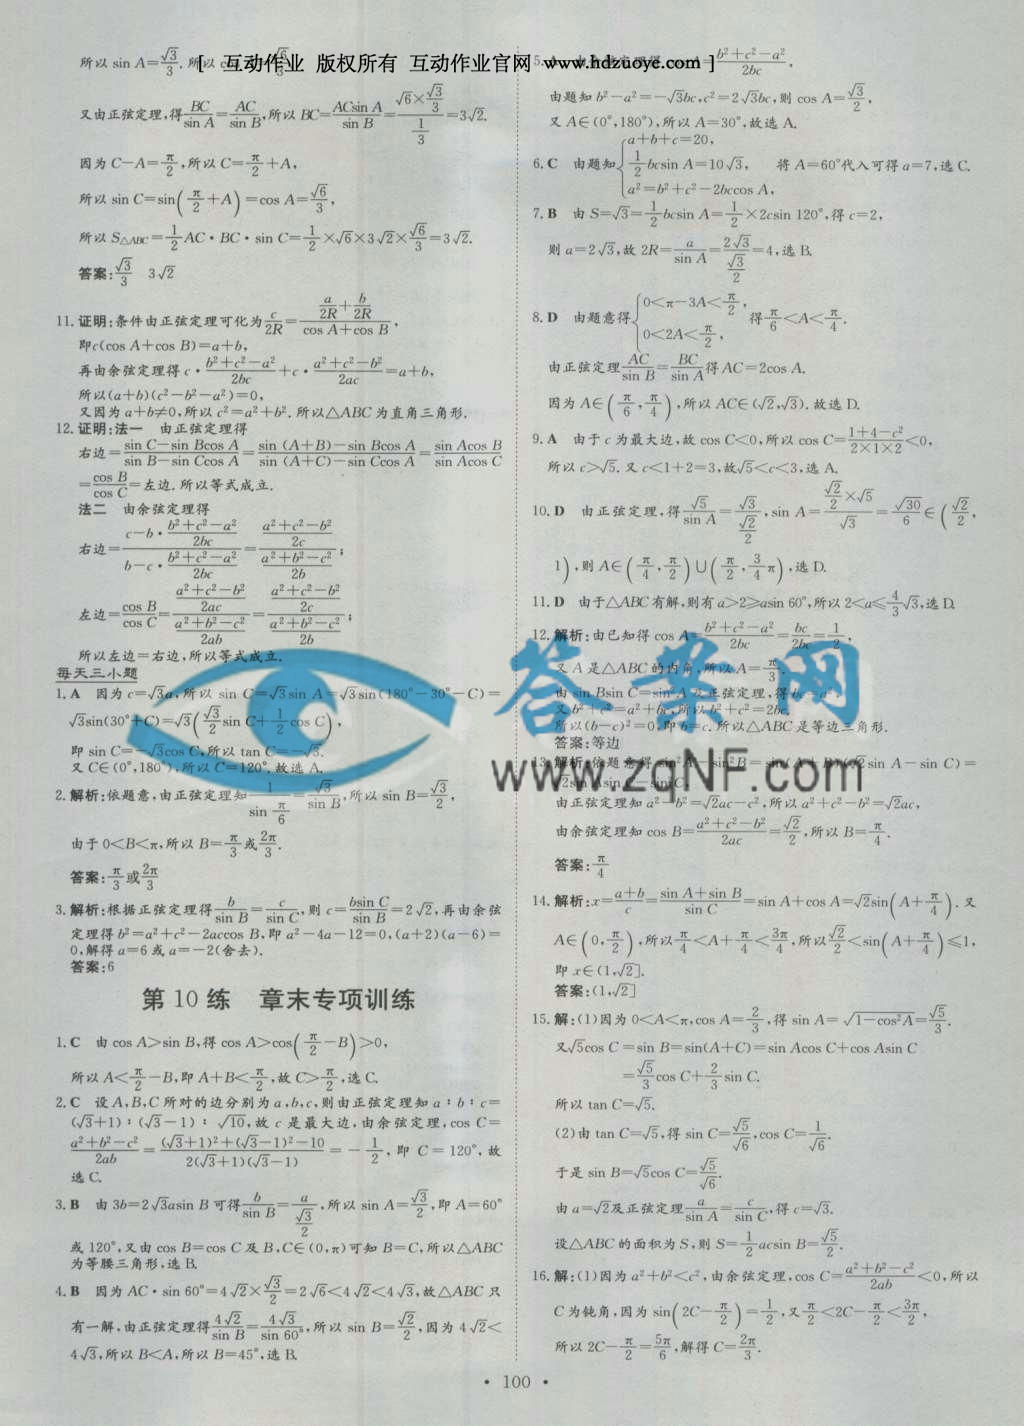 [ 互动作业 版权所有 互动作业官网 www.hdzuoye.com ]
所以 sin A=√3/3. 所以 cos
又由正弦定理,得BC/sin A=AC/sin B,所以 BC=ACsin A/sin B=(√6×√3/3)/(1/3)=3√2.
因为 C-A=π/2,所以 C=π/2+A,
所以 sin C=sin(π/2+A)=cos A=√6/3,
所以 S△ABC=1/2 AC·BC·sin C=1/2×√6×3√2×√6/3=3√2.
答案:√3/3 3√2
11. 证明:条件由正弦定理可化为c/2R=(a/2R+b/2R)/(cos A+cos B),
即c(cos A+cos B)=a+b,
再由余弦定理得 c·(b²+c²-a²)/2bc+c·(a²+c²-b²)/2ac=a+b,
所以(a+b)(c²-b²-a²)=0,
又因为 a+b≠0,所以 c²=a²+b². 所以△ABC为直角三角形.
12. 证明:法一 由正弦定理得
右边=(sin C-sin Bcos A)/(sin B-sin Ccos A)=(sin (A+B)-sin Bcos A)/(sin (A+C)-sin Ccos A)=sin Acos B/sin Acos C
=cos B/cos C=左边. 所以等式成立.
法二 由余弦定理得
右边=(c-b·(b²+c²-a²)/2bc)/(b-c·(b²+c²-a²)/2bc)=((a²+c²-b²)/2c)/((a²+b²-c²)/2b);
左边=cos B/cos C=((a²+c²-b²)/2ac)/((a²+b²-c²)/2ab)=((a²+c²-b²)/2c)/((a²+b²-c²)/2b),
所以左边=右边,所以等式成立.
每天三小题
1. A 因为 c=√3a,所以 sin C=√3sin A=√3sin(180°-30°-C)=
√3sin(30°+C)=√3(√3/2 sin C+1/2 cos C),
即 sin C=-√3cos C,所以 tan C=-√3.
又 C∈(0°,180°),所以 C=120°. 故选 A.
2. 解析:依题意,由正弦定理知1/sin π/6=√3/sin B,所以 sin B=√3/2,
由于 0<B<π,所以 B=π/3或2π/3.
答案:π/3或2π/3
3. 解析:根据正弦定理得b/sin B=c/sin C,则 c=bsin C/sin B=2√2,再由余弦
定理得 b²=a²+c²-2accos B,即 a²-4a-12=0,(a+2)(a-6)=
0,解得 a=6 或 a=-2(舍去).
答案:6
第 10 练 章末专项训练
1. C 由 cos A>sin B,得 cos A>cos(π/2-B)>0,
所以 A<π/2-B,即 A+B<π/2,故 C>π/2,选 C.
2. C 设 A,B,C 所对的边分别为 a,b,c,则由正弦定理知 a:b:c=
(√3+1):(√3-1):√10,故 c 是最大边,由余弦定理,cos C=
(a²+b²-c²)/2ab=((√3+1)²+(√3-1)²-10)/(2(√3+1)(√3-1))=-1/2,即 C=120°,故
选 C.
3. B 由 3b=2√3asin B 可得b/sin B=a/(√3/2),所以 sin A=√3/2,即 A=60°
或 120°,又由 cos B=cos C 及 B,C∈(0,π)可知 B=C,所以△ABC
为等腰三角形,选 B.
4. B 因为 AC·sin 60°=4√2×√3/2=2√6<4√2<4√3,故△ABC 只
有一解,由正弦定理得4√2/sin B=4√3/sin 60°,所以 sin B=√2/2,因为 4√2<
4√3,所以 B<A,所以 B=45°,选 B.
5. A 由余弦定理得 cos A=(b²+c²-a²)/2bc,
由题知 b²-a²=-√3bc,c²=2√3bc,则 cos A=√3/2,
又 A∈(0°,180°),所以 A=30°,故选 A.
6. C 由题知{a+b+c=20, 1/2 bcsin A=10√3, a²=b²+c²-2bccos A, 将 A=60°代入可得 a=7,选 C.
7. B 由 S=√3=1/2 bcsin A=1/2×2csin 120°,得 c=2,
则 a=2√3,故 2R=a/sin A=2√3/(√3/2)=4,选 B.
8. D 由题意得{0<π-3A<π/2, 0<2A<π/2, 得π/6<A<π/4.
由正弦定理AC/sin B=BC/sin A得 AC=2cos A.
因为 A∈(π/6,π/4),所以 AC∈(√2,√3). 故选 D.
9. A 由于 c 为最大边,故 cos C<0,所以 cos C=(1+4-c²)/(2×1×2)<0,
所以 c>√5. 又 c<1+2=3,故√5<c<3,选 A.
10. D 由正弦定理,得√5/sin A=√3/(√2/2),sin A=(√2/2×√5)/√3=√30/6∈(√2/2,
1),则 A∈(π/4,π/2)∪(π/2,3/4π),选 D.
11. D 由于△ABC有解,则有 a>2≥asin 60°,所以 2<a≤4/3√3,选 D.
12. 解析:由已知得 cos A=(b²+c²-a²)/2bc=bc/2bc=1/2,
又 A 是△ABC的内角,所以 A=π/3.
由 sin Bsin C=sin²A及正弦定理,得 bc=a²,
又 b²+c²=a²+bc,所以 b²+c²=2bc.
所以(b-c)²=0,即 b=c. 所以△ABC 是等边三角形.
答案:等边
13. 解析:依题意得 sin²A-sin²B=sin(A+B)(√2sin A-sin C)=
√2sin Asin C-sin²C,
由正弦定理知 a²-b²=√2ac-c²,所以 a²+c²-b²=√2ac,
由余弦定理知 cos B=(a²+c²-b²)/2ac=√2/2,所以 B=π/4.
答案:π/4
14. 解析:x=(a+b)/c=(sin A+sin B)/sin C=sin A+cos A=√2sin(A+π/4). 又
A∈(0,π/2),所以π/4<A+π/4<3π/4,所以√2/2<sin(A+π/4)≤1,
即 x∈(1,√2].
答案:(1,√2]
15. 解:(1)因为 0<A<π,cos A=2/3,得 sin A=√(1-cos²A)=√5/3.
又√5cos C=sin B=sin(A+C)=sin Acos C+cos Asin C
=√5/3 cos C+2/3 sin C.
所以 tan C=√5.
(2)由 tan C=√5,得 sin C=√5/√6,cos C=1/√6.
于是 sin B=√5cos C=√5/√6.
由 a=√2及正弦定理a/sin A=c/sin C,得 c=√3.
设△ABC 的面积为 S,则 S=1/2 acsin B=√5/2.
16. 解:(1)因为 a²+b²<c²,由余弦定理,cos C=(a²+b²-c²)/2ab<0,所以
C为钝角,因为 sin(2C-π/2)=1/2,又π/2<2C-π/2<3π/2,
所以 2C-π/2=5π/6,解得 C=2π/3.
答案网
www.zqNF.com
• 100 •